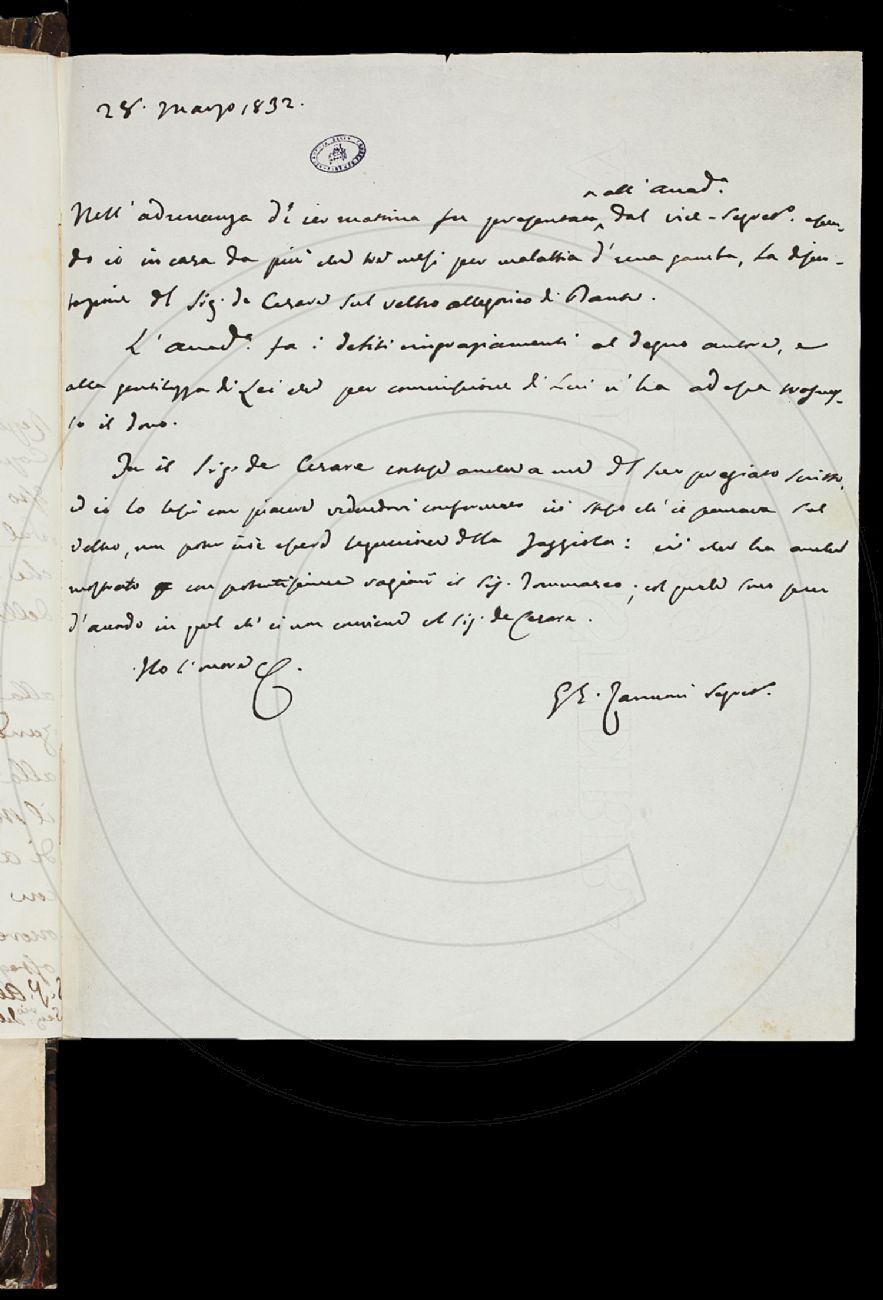 28. Marzo 1832.
all' Accad.ª
Nell' adunanza di ier mattina fu presentata dal vice-Segret.º essen-
do io in casa da più che tre mesi per malattia d'una gamba, la disser-
tazione del Sig. de Cesare sul veltro allegorico di Dante.
L' Accad.ª fa i debiti ringraziamenti al degno autore, e
alla gentilezza di Lei che per commissione di Lui n' ha ad essa trasmes-
so il dono.
Fu il Sig. de Cesare cortese anche a me del suo pregiato scritto,
ed io lo lessi con piacere vedendovi confermato ciò ch' io pensava sul
Veltro, non poter cioè essere Uguccione della Faggiola: ciò che ha anche
mostrato con potentissime ragioni il Sig. Tommaseo; col quale sono pure
d'accordo in quel ch' ei non conviene col Sig. de Cesare.
Ho l'onore
G. B. Zannoni Segret.º